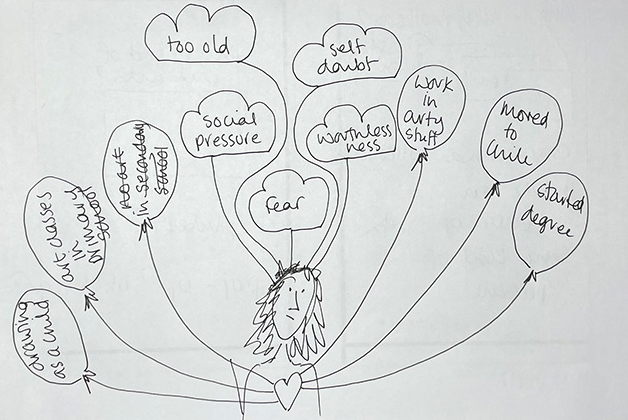 too old
self
doubt
social
pressure
worthless
ness
fear
work
in
arty
stuff
moved
to
Chile
started
degree
no art
in secondary
school
art classes
in
primary
school
drawing
as a child